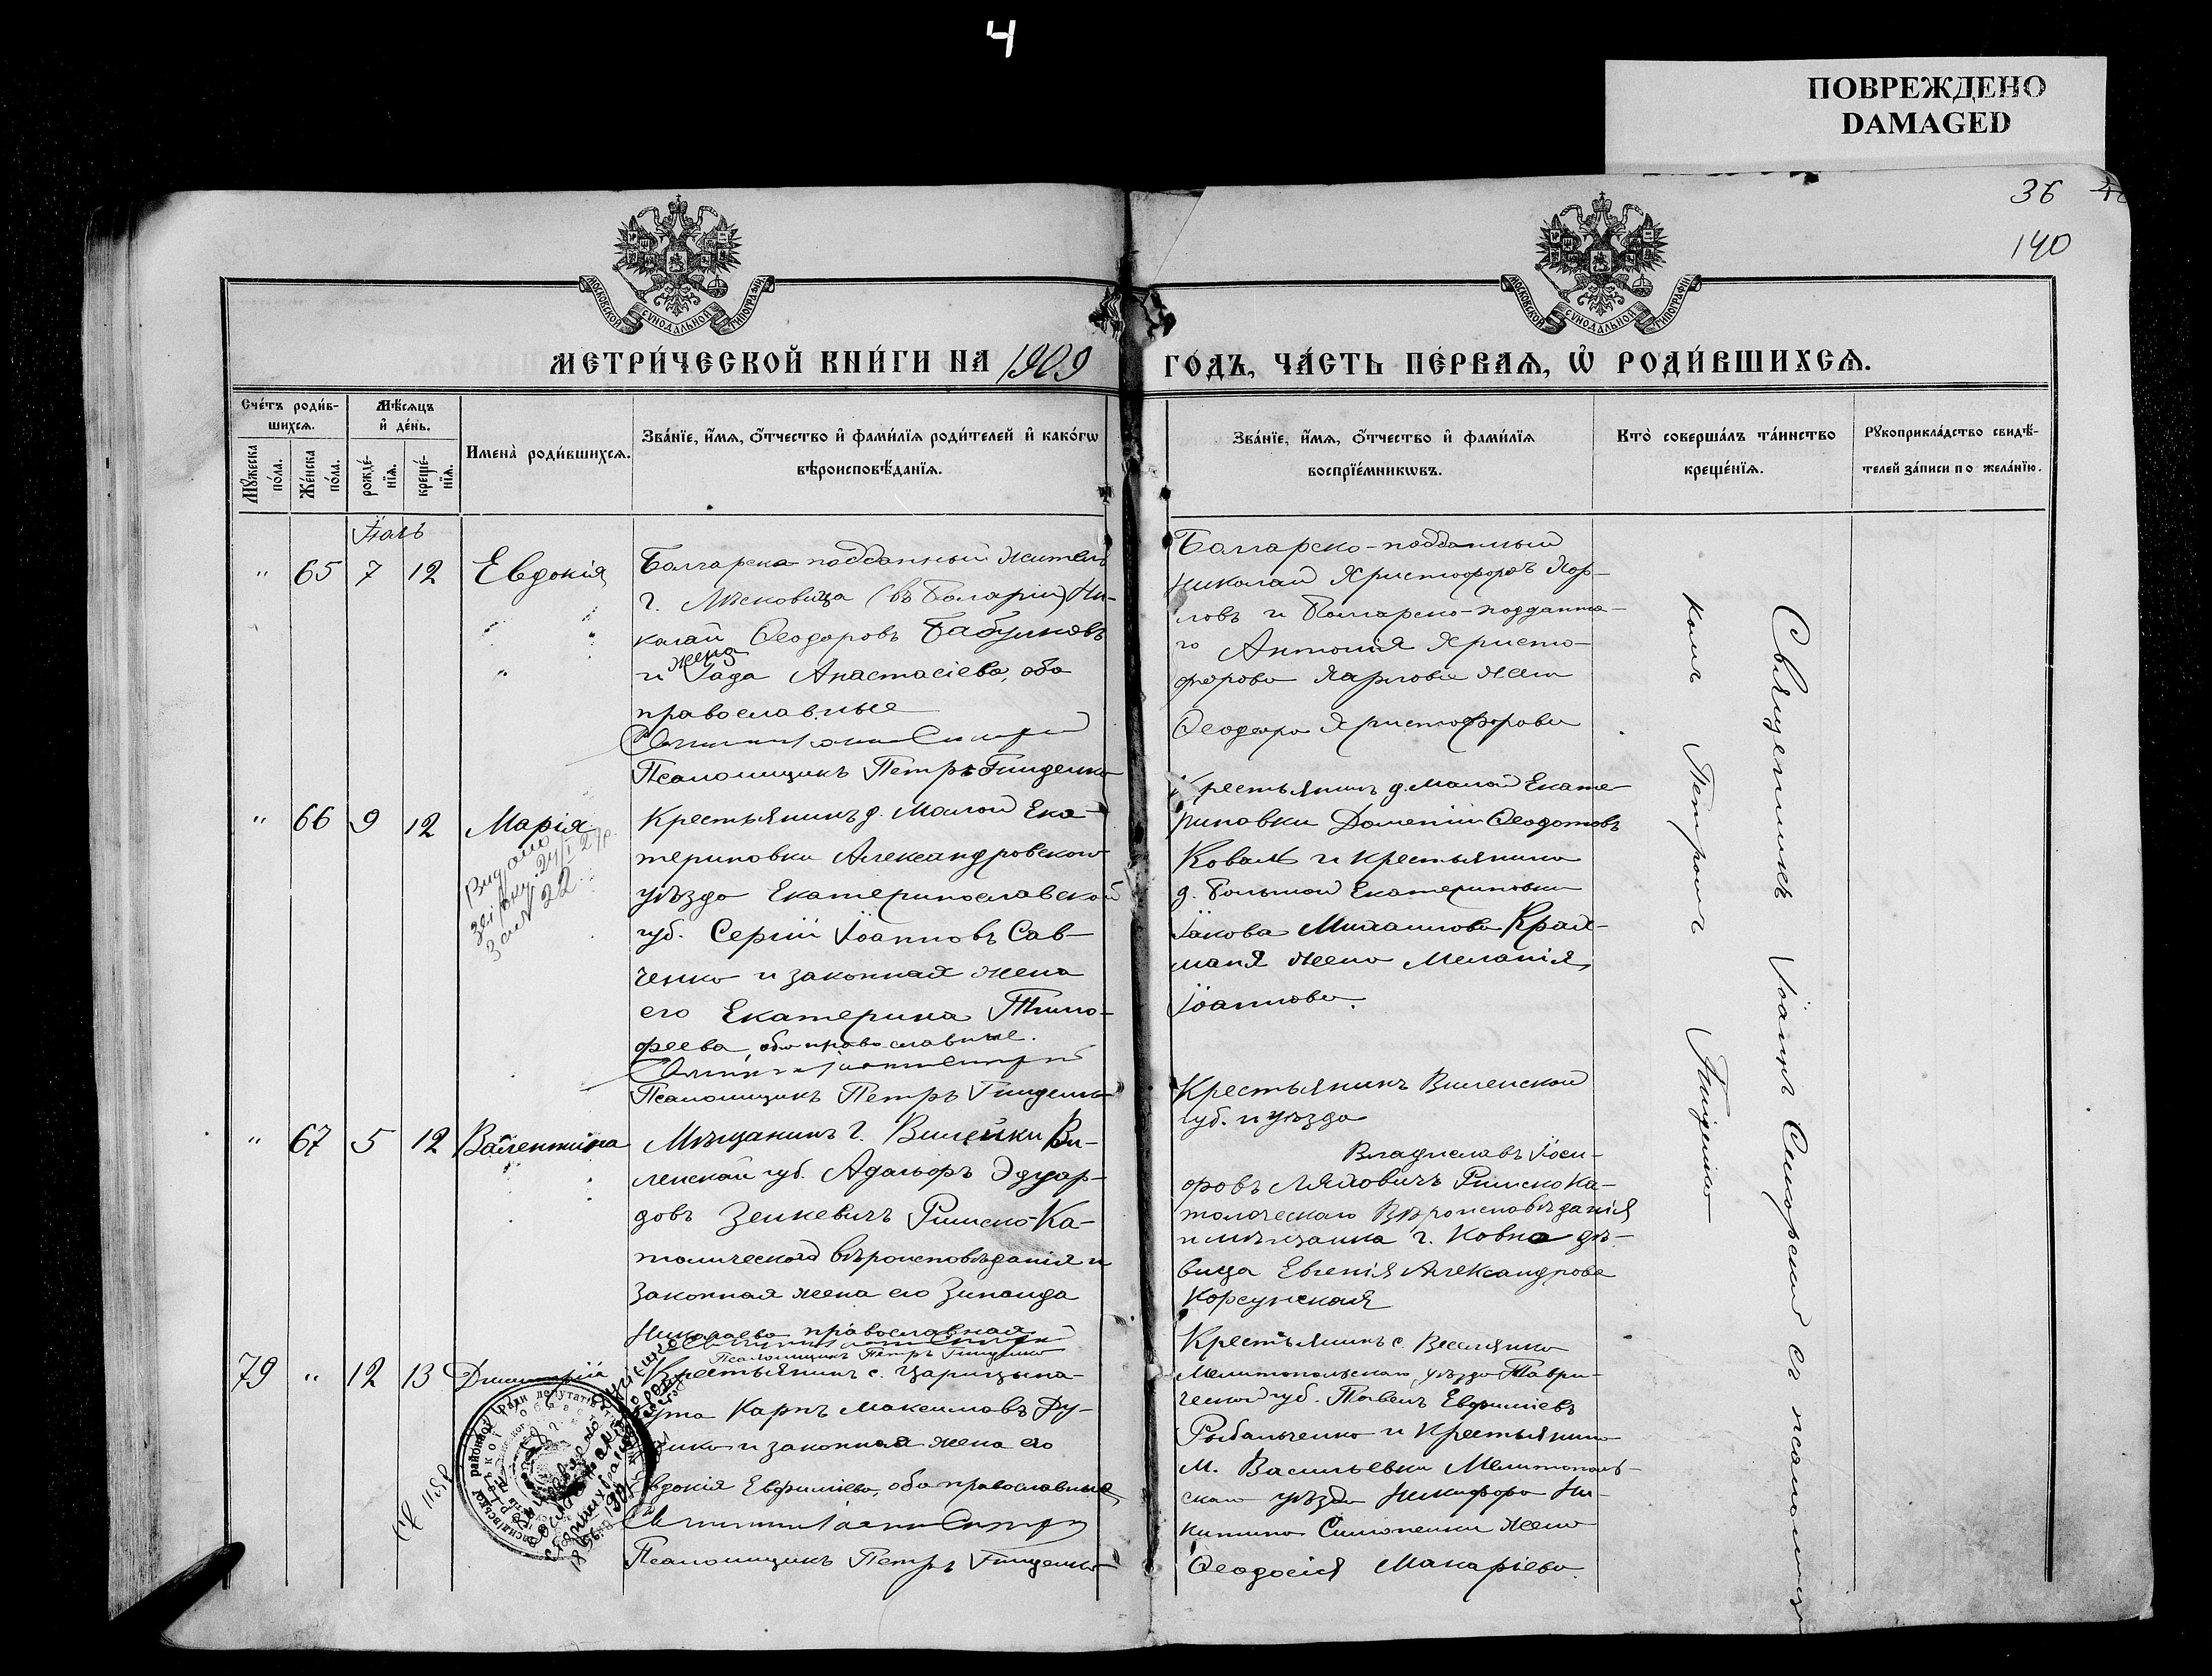 4
ПОВРЕЖДЕНО
DAMAGED
36
140
МОСКОВСКОЙ СѴНОДАЛЬНОЙ ТИПОГРАФІИ
МОСКОВСКОЙ СѴНОДАЛЬНОЙ ТИПОГРАФІИ
МЕТРИ́ЧЕСКОЙ КНИ́ГИ НА 1909
ГО́ДЪ, ЧА́СТЬ ПЕ́РВАѦ, Ѡ҆ РОДИ́ВШИХСѦ.
Сче́тъ роди́в-
шихсѧ.
Мꙋ́жеска по́ла.
Же́нска по́ла.
Мѣ́сѧцъ
и҆ де́нь.
рожде́-
нїѧ.
креще́-
нїѧ.
Имена̀ роди́вшихсѧ.
Зва́нїе, и҆́мѧ, ѻ҆́тчество и҆ фами́лїѧ роди́телей и҆ како́гѡ
вѣроисповѣ́данїѧ.
Зва́нїе, и҆́мѧ, ѻ҆́тчество и҆ фами́лїѧ
воспрїе́мникѡвъ.
Кто̀ соверша́лъ та́инство
креще́нїѧ.
Рꙋкоприкла́дство свидѣ́-
телей за́писи по жела́нїю.
Іюль
" 65 7 12 Евдокія
Болгарско-подданный житель
г. Лясковица (въ Болгаріи) Ни-
колай Ѳеодоровъ Бабулковъ
жена
и Рада Анастасіева, оба
православные
Псаломщикъ Петръ Гниденко
Болгарско-подданный
Николай Христофоровъ Кар-
ловъ и Болгарско-подданна-
го Антонія Христо-
форова Карлова жена
Ѳеодора Христофорова
" 66 9 12 Марія
Видано
22
Крестьянинъ д. Малой Ека-
териновки Александровскаго
уѣзда Екатеринославской
губ. Сергій Іоанновъ Сав-
ченко и законная жена
его Екатерина Тимо-
феева, оба православные.
Псаломщикъ Петръ Гниденко
Крестьянинъ д. Малой Екате-
риновки Дометій Ѳеодотовъ
Коваль и крестьянина
д. Большой Екатериновки
Іакова Михаилова Край-
маня жена Меланія
Іоаннова.
" 67 5 12 Валентина
Мѣщанинъ г. Вилейки Ви-
ленской губ. Адольфъ Эдуар-
довъ Зенкевичъ Римско-Ка-
толическаго вѣроисповѣданія и
законная жена его Зинаида
Николаева православная
Псаломщикъ Петръ Гниденко
Крестьянинъ Виленской
губ. и уѣзда
Владиславъ Іоси-
фовъ Ляховичъ Римско Ка-
толическаго Вѣроисповѣданія
и мѣщанка г. Ковна дѣ-
вица Евгенія Александрова
Корсунская
79 " 12 13 Димитрій
Крестьянинъ с. Царицына-
Кута Карпъ Максимовъ Ду-
и законная жена его
Евдокія Евфиміева, оба православные
Псаломщикъ Петръ Гниденко
Крестьянинъ с. Веселянки
Мелитопольскаго уѣзда Таври-
ческой губ. Павелъ Евфиміевъ
Рыбальченко и крестьянина
м. Васильевки Мелитополь-
скаго уѣзда Никифора Ни-
китина Симоненки жена
Ѳеодосія Макаріева.
Священникъ Іоаннъ Сикорскій съ псаломщи-
комъ Петромъ Гниденко